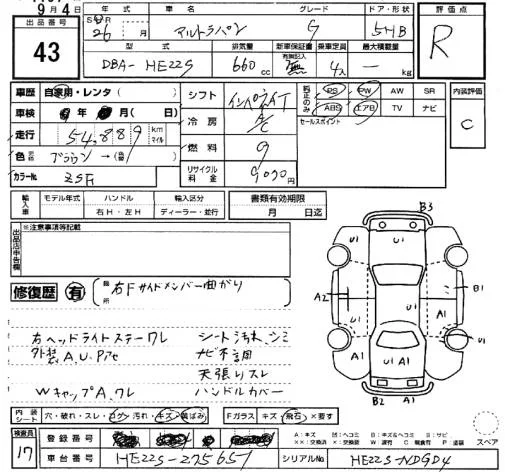 9月4
出品番号
43
年式
26
月
車名
アルトラパン
グレード
G
ドア・形状
5HB
評価点
R
型式
DBA-HE22S
排気量
660
cc
新車保証書
無
乗車定員
4人
最大積載量
—
kg
車歴
自家用・レンタ
車検
年
月(
日)
走行
54,889
km
マイル
色
ブラウン→
カラーNo.
ZSF
シフト
インパネAT
冷房
A/C
燃料
G
リサイクル料金
9,090円
純正のみ
PS
PW
AW
SR
ABS
エアB
TV
ナビ
セールスポイント
内装評価
C
輸入車
モデル年式
ハンドル
右H・左H
輸入区分
ディーラー・並行
書類有効期限
月
日迄
出品店申告欄
※注意事項等記載
修復歴
有
箇所
右Fサイドメンバー曲がり
右ヘッドライトステーワレ
シート汚れ、シミ
ナビ不調
天張りスレ
Wキャップ A、ワレ
ハンドルカバー
B3
U1
U1
U1
U1
A2
B1
A1
U1
A1
U1A1
U1
A1
A1
B2
スペア
内装シート
穴・破れ・スレ・コゲ・汚れ・キズ・黄ばみ
Fガラス
キズ・飛石・×要す
検査員
17
登録番号
車台番号
HE22S-275657
シリアルNo.
HE22S-NDGD4